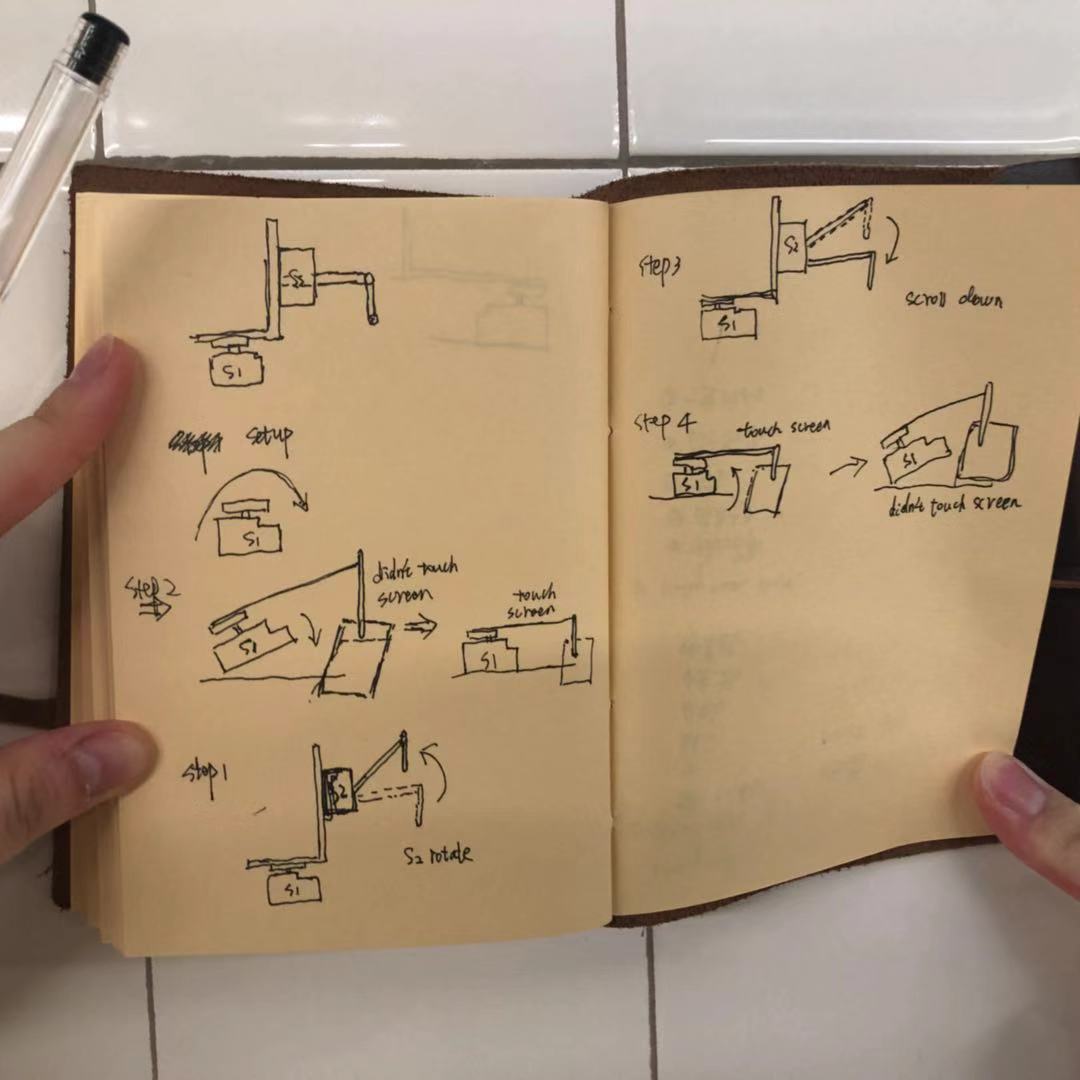 S2
S1
setup
S1
step2
didn't touch
screen
touch
screen
S1
step1
S2
S2 rotate
S1
step3
S2
scroll down
S1
step 4
touch screen
S1
S1
didn't touch screen